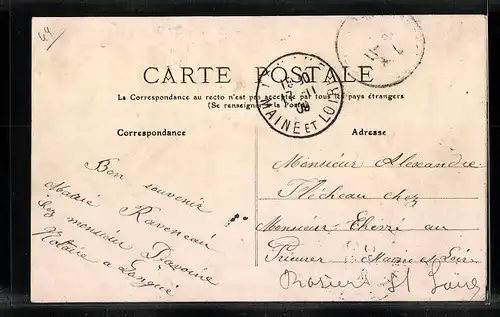 49
CARTE POSTALE
La Correspondance au recto n'est pas acceptée par tous les pays étrangers
(Se renseigner à la Poste)
MAINE ET LOIRE
Correspondance
Adresse
Bon souvenir
Marie Raveneau
chez monsieur Davoine
Notaire a Longué
Monsieur Alexandre
Flécheau chez
Monsieur
au
Prieuré Maine et Loire
Rosiers St Loire